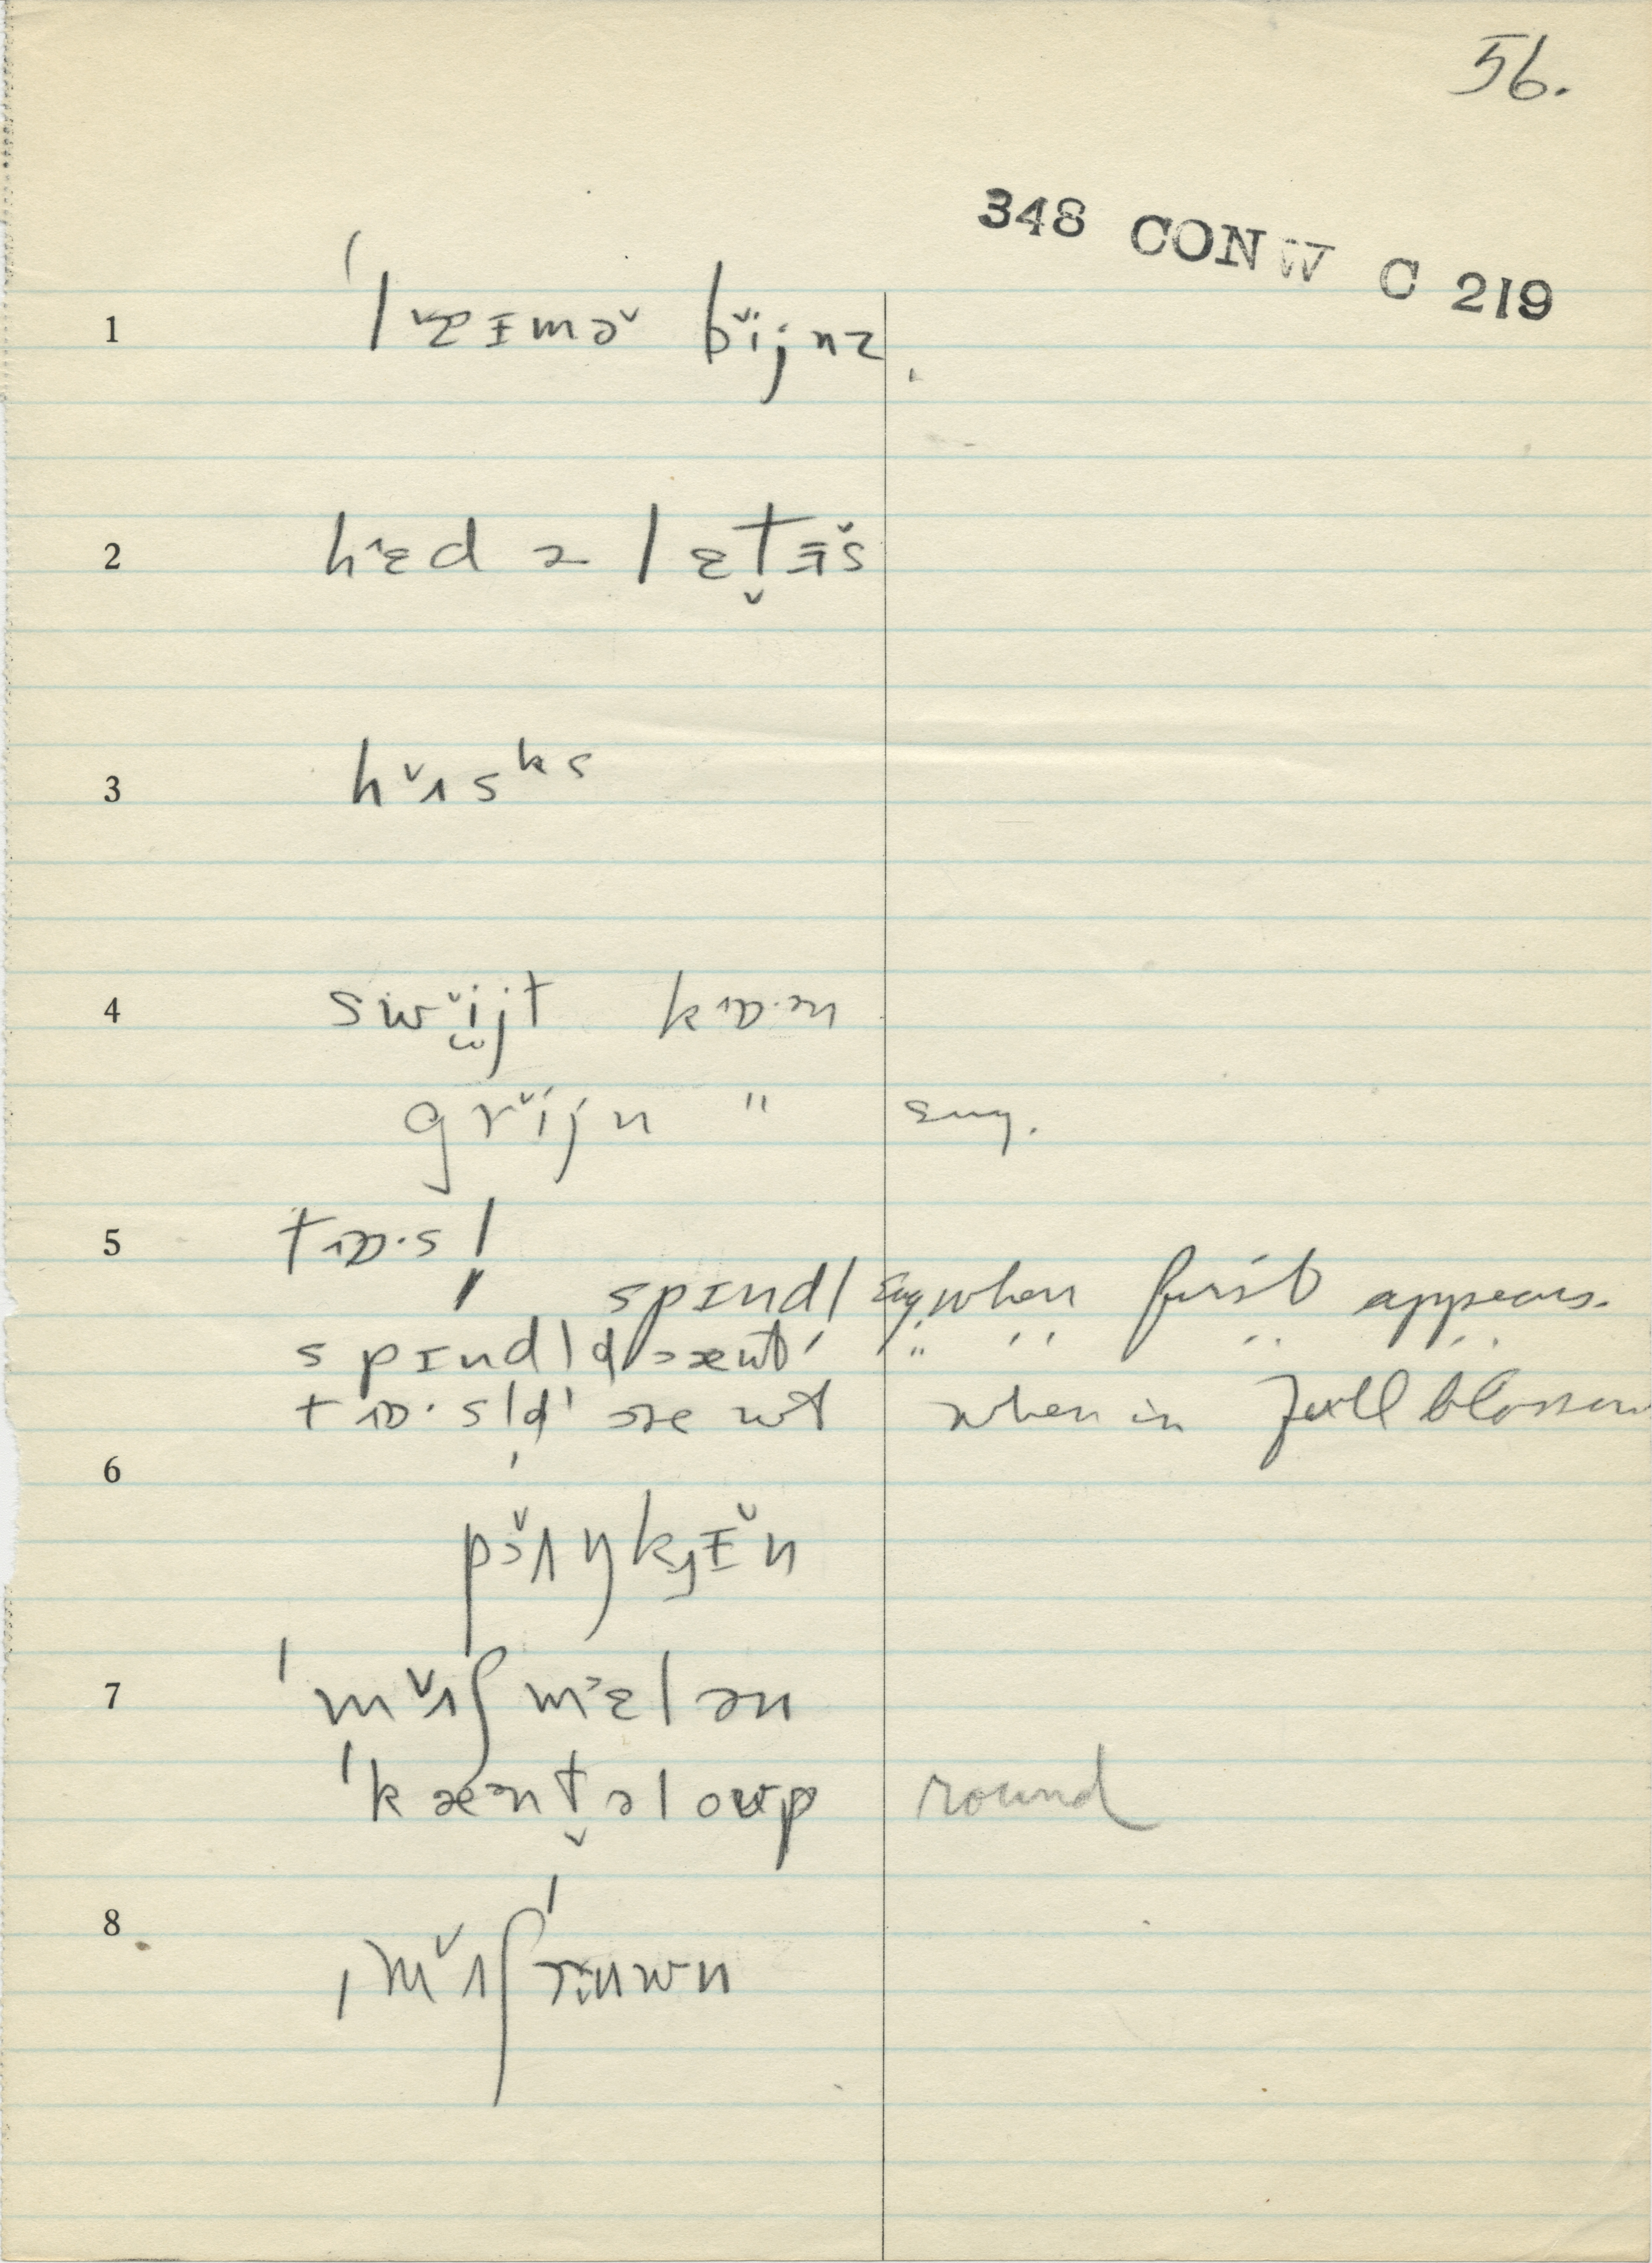 56.
348 CONW C 219
1 ˈlæ̌ɪmə̌ bǐjnz
2 hɛd ə lɛt̬ɪ̌s
3 hʌ̌sᵏs
4 swǐjt kɒ·ən
grǐjn " sug.
5 tɒ·sl̩
spɪndl̩ sug. when first appears.
spɪndl̩d æut " " " "
tɒ·sl̩d æut when in full blossom
6 pʌ̌ŋkɪ̌n
7 ˈmʌ̌ʃmɛlən
ˈkæənt̬əloʊp round
8 ˌmʌ̌ʃˈrʉwn